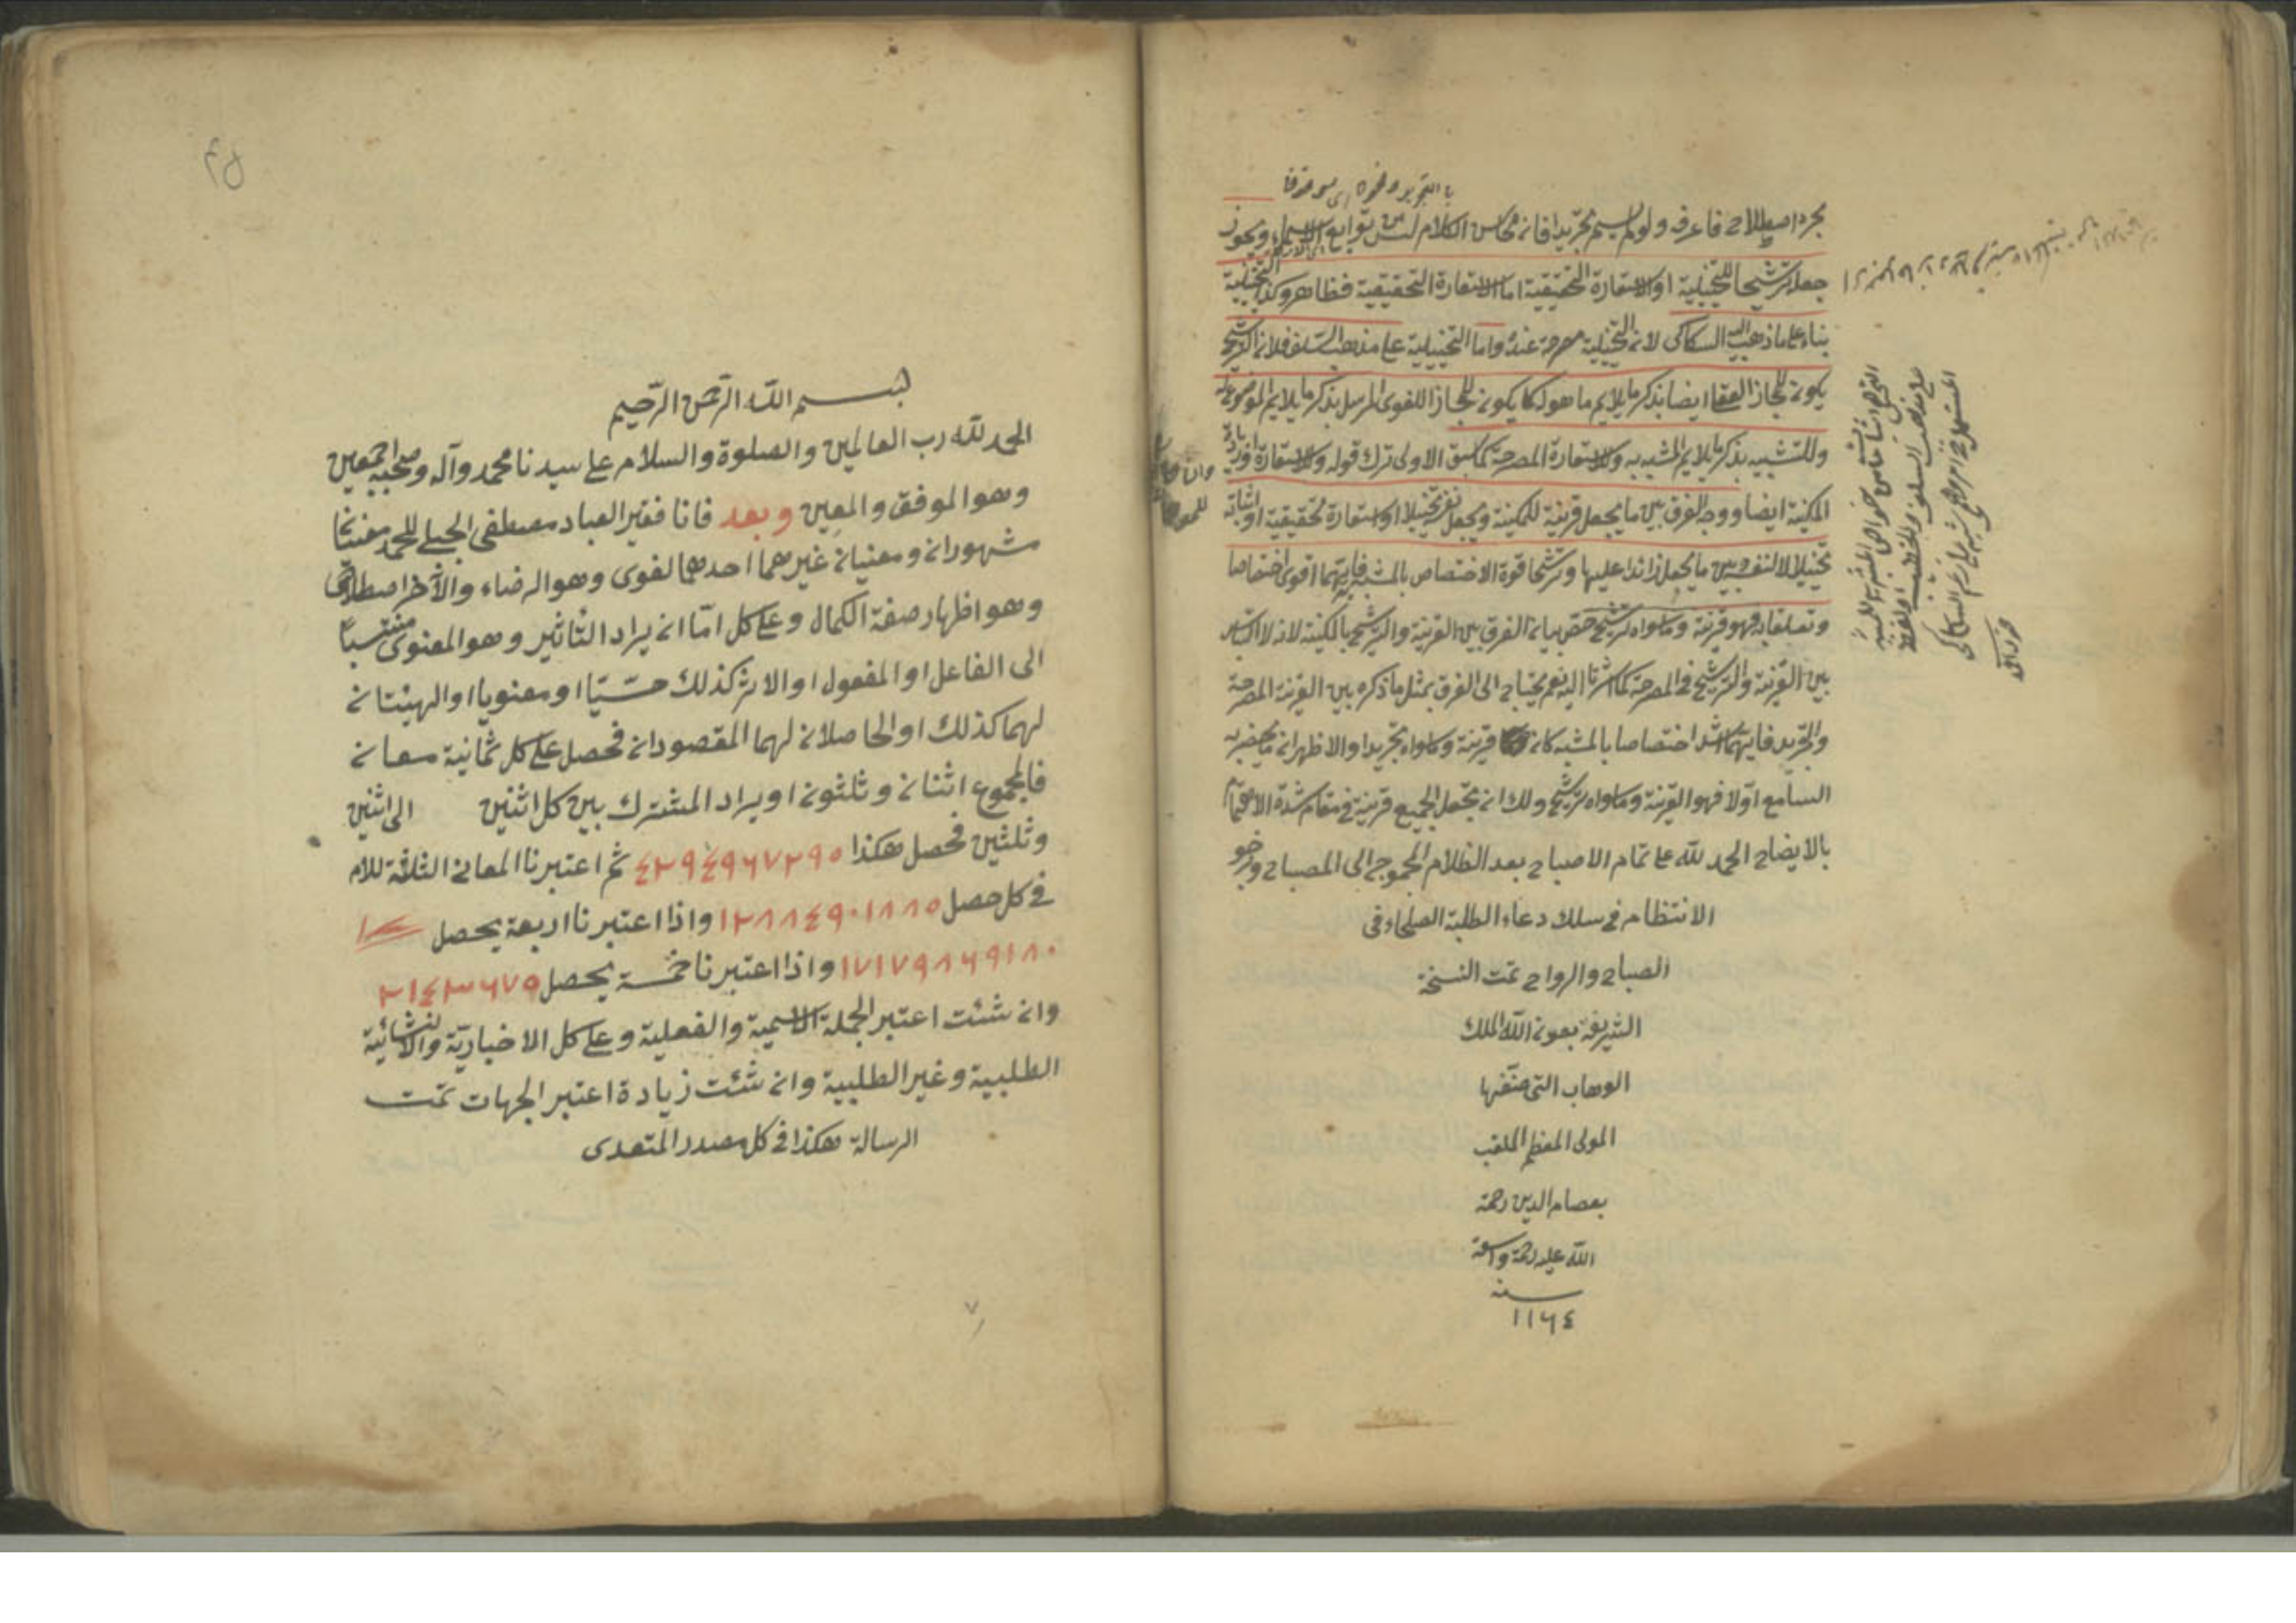 مجرد اصطلاح فاعرف ولو لم يسم تجريدا فانه محاسن الكلام ليس توابع الاستعارة ويجوز
جعله ترشيحا للتخييلية او الاستعارة التحقيقية اما الاستعارة التحقيقية فظاهر وكذا التخييلية
بناء على ما ذهب اليه السكاكى لانه التخييلية مصرحة عنده واما التخييلية على مذهب السلف فلانه الترشيح
يكون للمجاز العقلى ايضا بذكر ما يلايم ما هو له كما يكون للمجاز اللغوى المرسل بذكر ما يلايم الموضوع له
وللتشبيه بذكر ما يلايم المشبه به وللاستعارة المصرحة كما سبق الاولى ترك قوله وللاستعارة
المكنية ايضا ووجه الفرق بين ما يجعل قرينة للمكنية ويجعل نفسه تخييلا او استعارة تحقيقية او اثباته
تخييلا لا لنفسه وبين ما يجعل زائدا عليها وترشيحا قوة الاختصاص بالمشبه فايهما اقوى اختصاصا
وتعلقا به فهو قرينة وما سواه ترشيح خص بيانه الفرق بين القرينة والترشيح بالمكنية لانه لا التباس
بين القرينة والترشيح فى المصرحة كما اشرنا اليه نعم يحتاج الى الفرق بمثل ما ذكره بين القرينة المصرحة
والتجريد فايهما اشد اختصاصا بالمشبه كانه قرينة وما سواه تجريدا والاظهر انه ما يحضر به
السامع اولا فهو القرينة وما سواه ترشيح ولك انه تجعل الجميع قرينة فى مقام شدة الاهتمام
بالايضاح الحمد لله على تمام الاصباح بعد الظلام المحوج الى المصباح ونرجو
الانتظام فى سلك دعاء الطلبة الصلحاء فى
الصباح والرواح تمت النسخة
الشريفة بعونه الله الملك
الوهاب التى صنفها
المولى المعظم الملقب
بعصام الدين رحمة
الله عليه رحمة واسعة
سنه
١١٦٤
بسم الله الرحمن الرحيم
الحمد لله رب العالمين والصلوة والسلام على سيدنا محمد وآله وصحبه اجمعين
وهو الموفق والمعين وبعد فانا فقير العباد مصطفى الجبلى للحمد معنيانا
مشهورانه ومعنيانه غيرهما احدهما لغوى وهو الرضاء والآخر اصطلاحى
وهو اظهار صفة الكمال وعلى كل اما انه يراد التأثير وهو المعنوى منتسبا
الى الفاعل او المفعول او الاثر كذلك حسيا او معنويا او الهيئتانه
لهما كذلك او الحاصلانه لهما المقصودانه فحصل على كل ثمانية معانه
فالمجموع اثنانه وثلثونه او يراد المشترك بين كل اثنين الى اثنين
وثلثين فحصل هكذا ٤٢٩٤٩٦٧٢٩٥ ثم اعتبرنا المعانى الثلاثة للام
فى كل حصل ١٢٨٨٤٩٠١٨٨٥ واذا اعتبرنا اربعة يحصل
١٧١٧٩٨٦٩١٨٠ واذا اعتبرنا خمسة يحصل ٢١٤٣٦٧٥
وانه شئت اعتبر الجملة الاسمية والفعلية وعلى كل الاخبارية والانشائية
الطلبية وغير الطلبية وانه شئت زيادة اعتبر الجهات تمت
الرسالة هكذا فى كل مصدر المتعدى